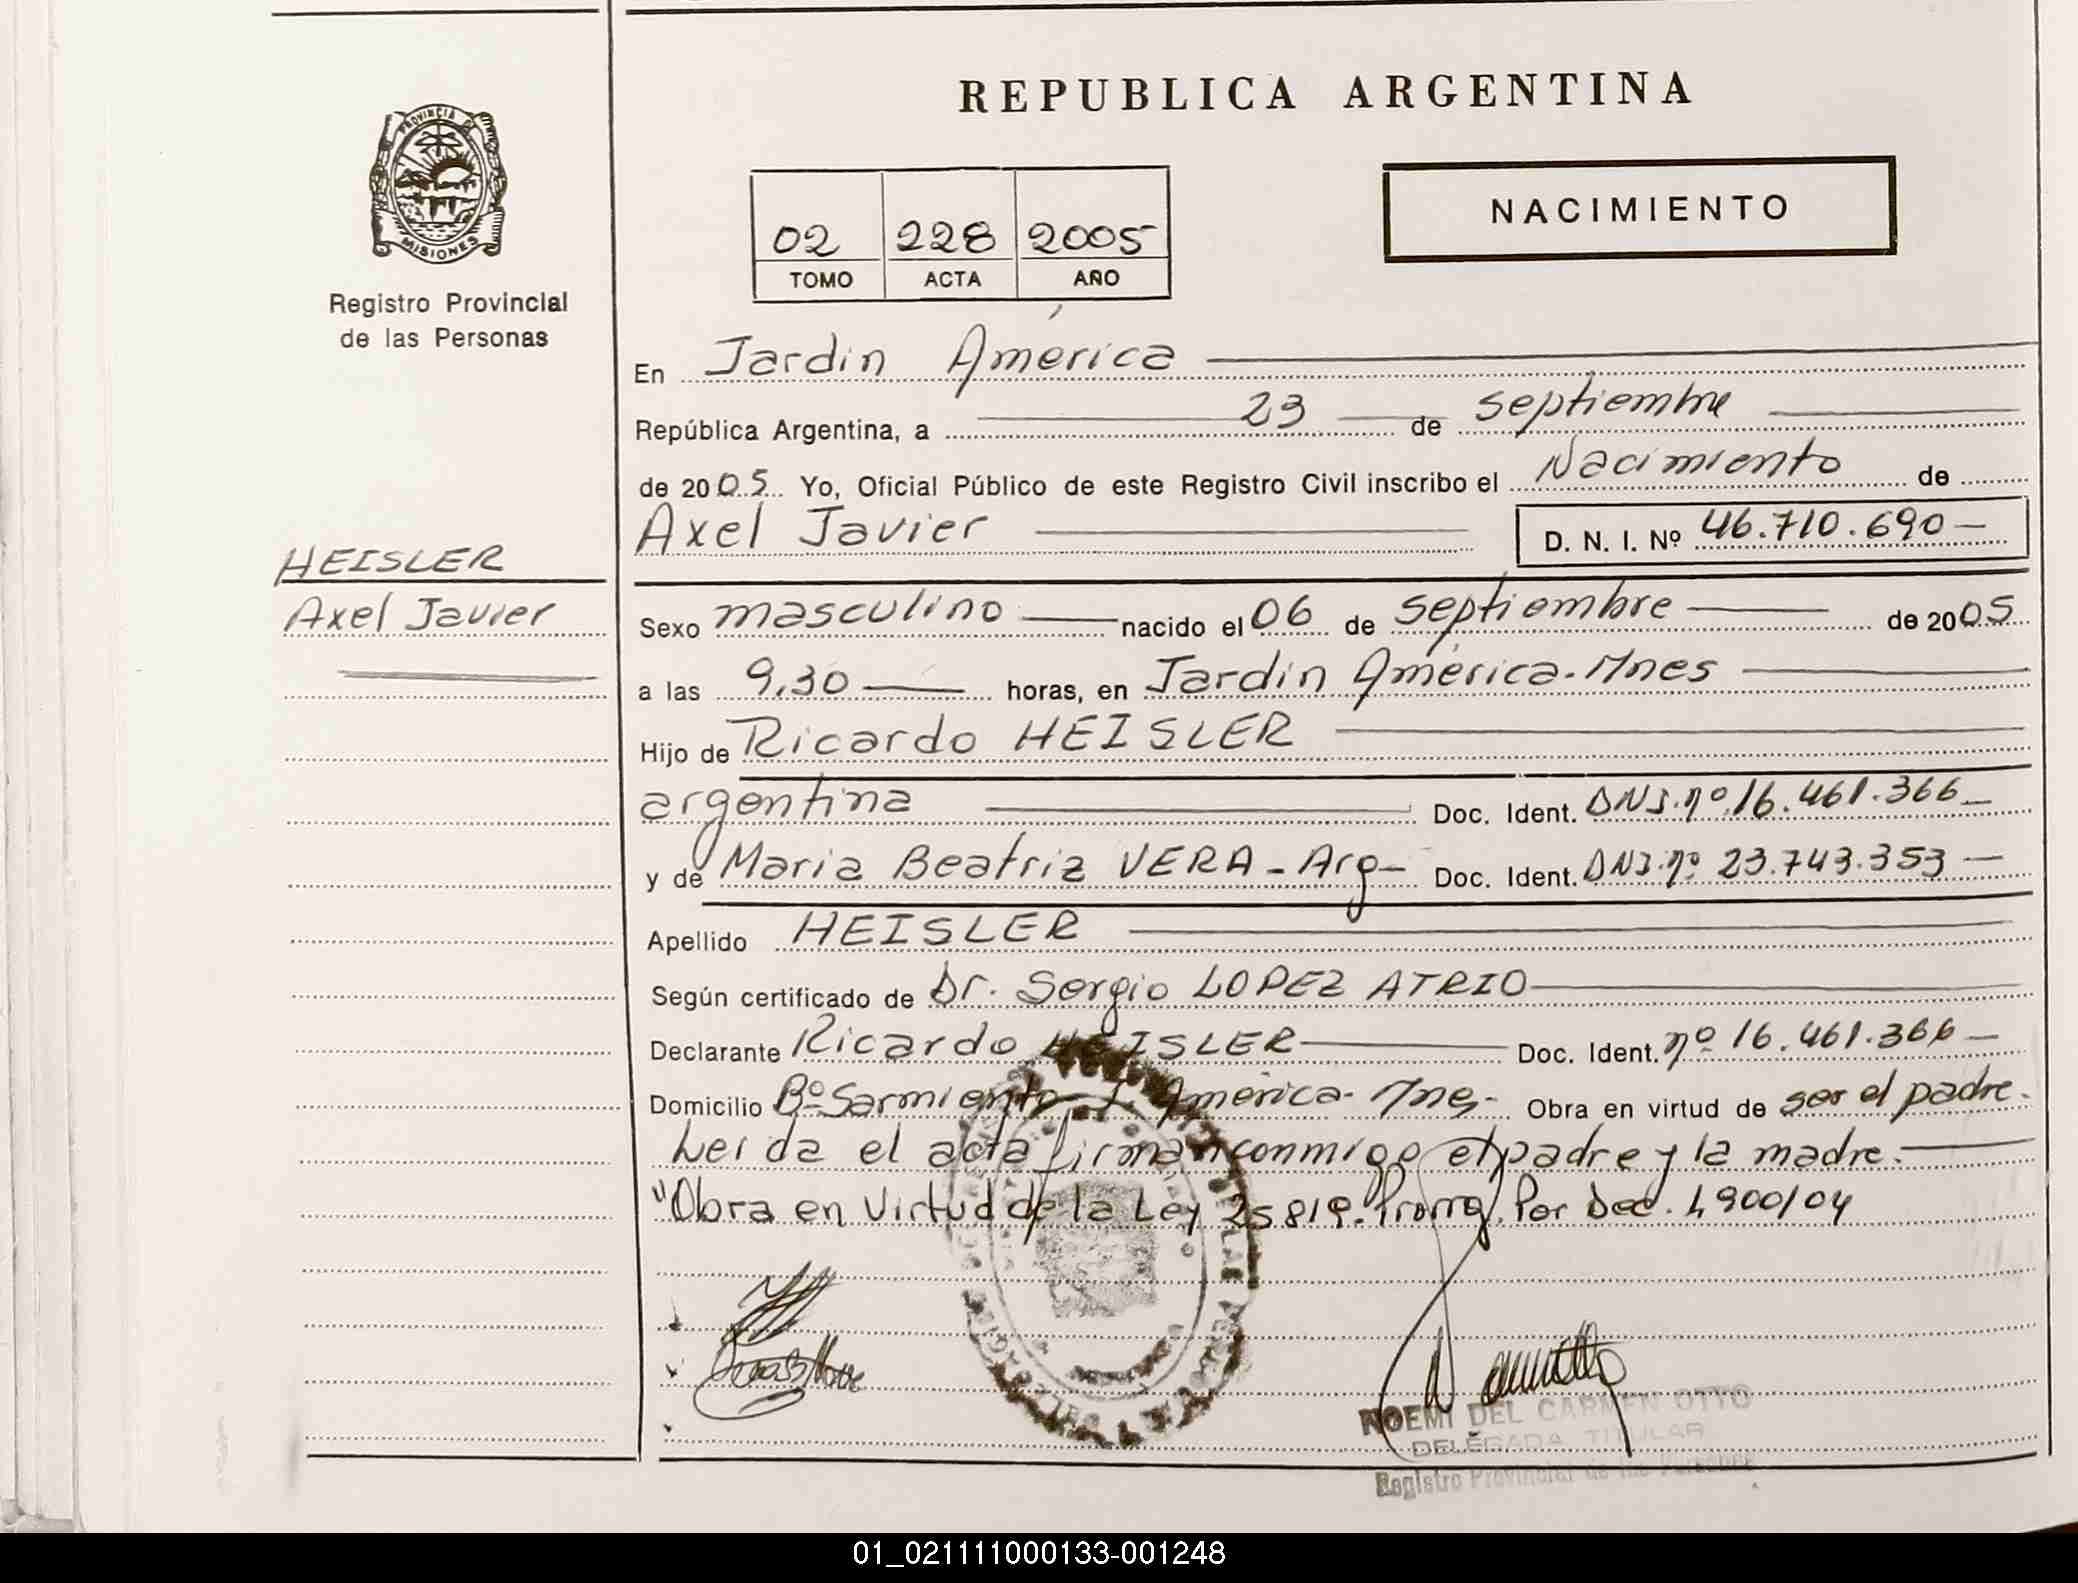 REPUBLICA ARGENTINA
PROVINCIA DE
MISIONES
Registro Provincial
de las Personas
NACIMIENTO
02 228 2005
TOMO ACTA AÑO
En Jardin América
República Argentina, a 23 de septiembre
de 2005 Yo, Oficial Público de este Registro Civil inscribo el Nacimiento de
Axel Javier D. N. I. Nº 46.710.690
HEISLER
Axel Javier
Sexo masculino nacido el 06 de septiembre de 2005
a las 9,30 horas, en Jardin América-Mnes
Hijo de Ricardo HEISLER
argentina Doc. Ident. DNI.nº.16.461.366
y de Maria Beatriz VERA - Arg- Doc. Ident. DNI.nº 23.743.353
Apellido HEISLER
Según certificado de Dr. Sergio LOPEZ ATRIO
Declarante Ricardo HEISLER Doc. Ident. nº 16.461.366
Domicilio Bº Sarmiento J. América- Mnes- Obra en virtud de ser el padre.
Leida el acta firman conmigo el padre y la madre.
"Obra en Virtud de la Ley 25819. Prorrog. Por Dec. 1900/04
NOEMI DEL CARMEN OTTO
DELEGADA TITULAR
Registro Provincial de las Personas
01_021111000133-001248